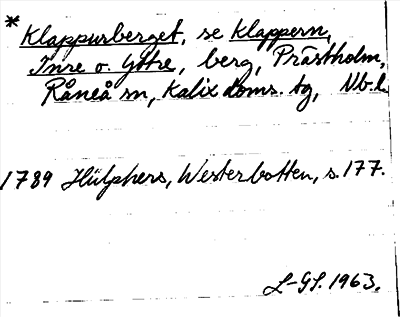 * Klappursberget, se Klappern,
Inre o. Yttre, berg, Prästholm,
Råneå sn, Kalix doms. tg, Nb. l.
1789 Hülphers, Westerbotten, s. 177.
L-GS. 1963.